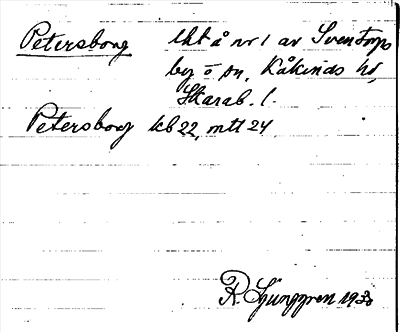 Petersborg lht å nr 1 av Sventorps
by o sn, Kåkinds hd,
Skarab. l.
Petersborg kb 22, mtl 24
R. Ljunggren 1930